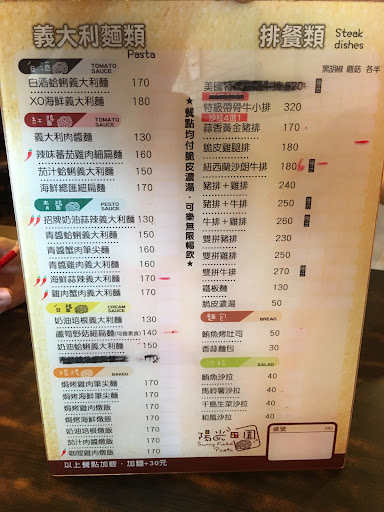 義大利麵類
Pasta
白酒 TOMATO SAUCE
白酒蛤蜊義大利麵 170
XO海鮮義大利麵 180
紅醬 TOMATO SAUCE
義大利肉醬麵 130
辣味蕃茄雞肉細扁麵 160
茄汁蛤蜊義大利麵 160
海鮮總匯細扁麵 180
青醬 PESTO SAUCE
招牌奶油蒜辣義大利麵 130
青醬蛤蜊義大利麵 150
青醬蟹肉筆尖麵 160
青醬雞肉義大利麵 160
海鮮蒜辣義大利麵 170
雞肉蟹肉義大利麵 170
白醬 CREAM SAUCE
奶油培根義大利麵 130
蘆筍野菇細扁麵(可做素食) 140
奶油蛤蜊義大利麵 150
焗烤 BAKED
焗烤雞肉筆尖麵 170
焗烤海鮮筆尖麵 170
焗烤雞肉燉飯 170
焗烤海鮮燉飯 170
奶油培根燉飯 170
茄汁肉醬燉飯 170
咖哩雞肉燉飯 170
以上餐點加飯、加麵+30元
★餐點均付脆皮濃湯·可樂無限暢飲★
排餐類
Steak dishes
黑胡椒 蘑菇 各半
320
特級帶骨牛小排 320
沙拉4選1
蒜香黃金豬排 170
脆皮雞腿排 180
紐西蘭沙朗牛排 180
豬排+雞排 240
豬排+牛排 250
牛排+雞排 260
雙拼豬排 230
雙拼雞排 250
雙拼牛排 270
鐵板麵 130
脆皮濃湯 50
麵包 BREAD
鮪魚烤吐司 50
香蒜麵包 30
沙拉 SALAD
鮪魚沙拉 40
馬鈴薯沙拉 40
千島生菜沙拉 40
和風沙拉 40
陽光田園
Sunny Field Pasta
桌號
NO